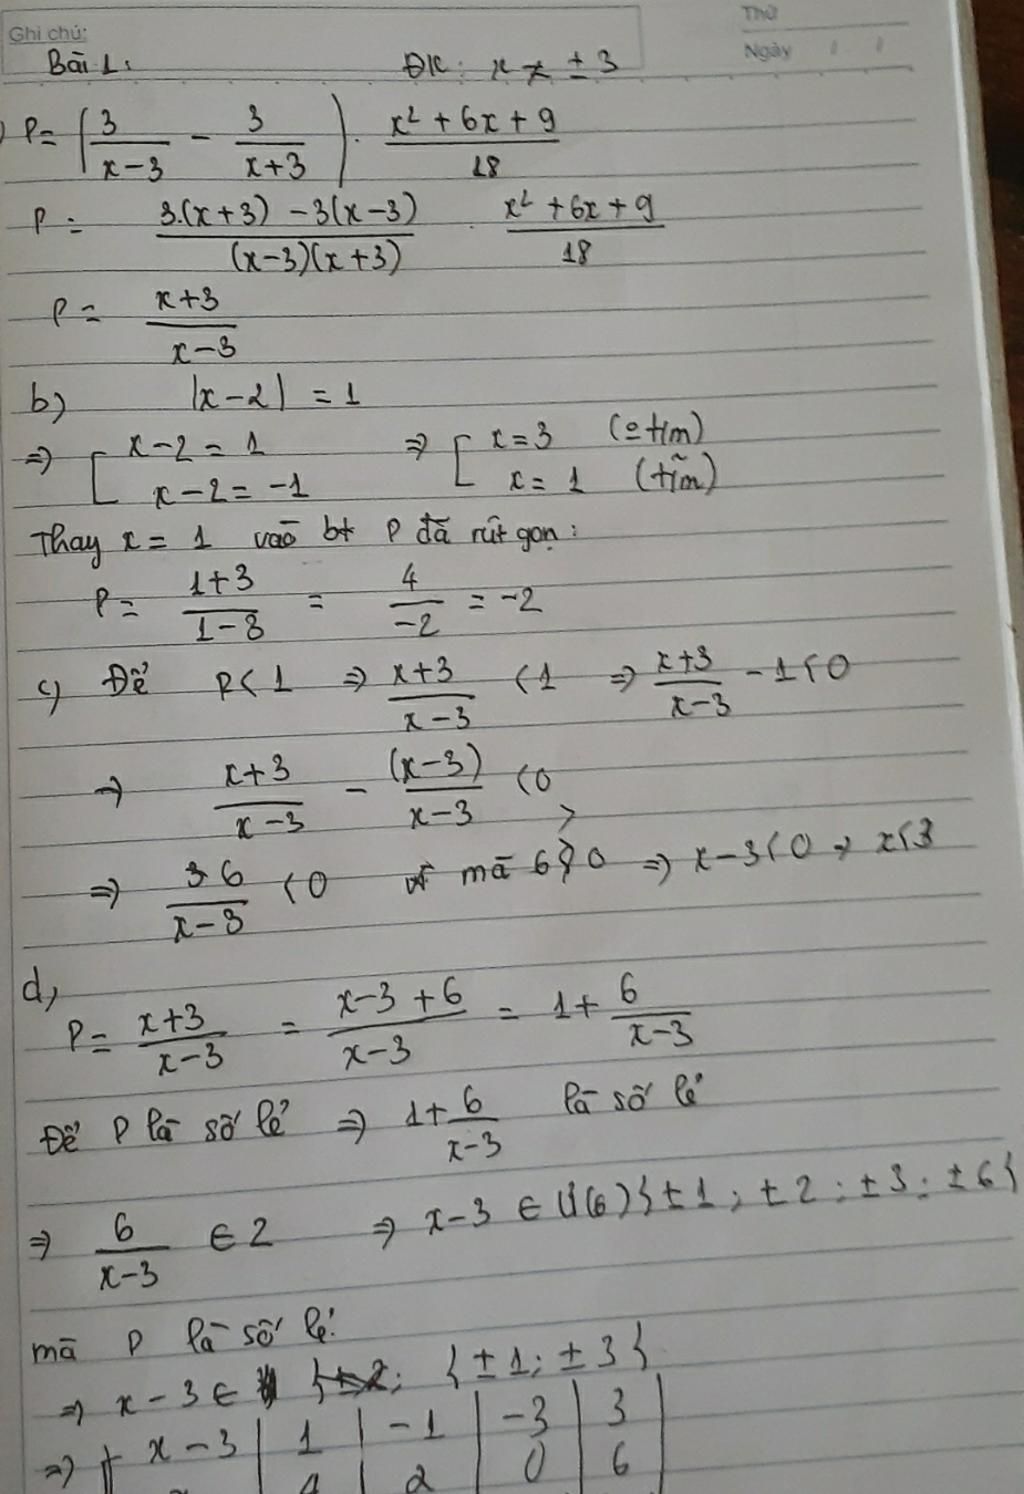 Ghi chú:
Thứ
Ngày
Bài 1: ĐK: x ≠ ±3
P = (3/(x-3) - 3/(x+3)) . (x² + 6x + 9)/18
P = (3.(x+3) - 3(x-3))/((x-3)(x+3)) . (x² + 6x + 9)/18
P = (x+3)/(x-3)
b) |x-2| = 1
⇒ [ x-2 = 1 ⇒ [ x = 3 (o t/m)
x-2 = -1 x = 1 (t/m)
Thay x = 1 vào bt P đã rút gọn:
P = (1+3)/(1-3) = 4/-2 = -2
c) Để P < 1 ⇒ (x+3)/(x-3) < 1 ⇒ (x+3)/(x-3) - 1 < 0
→ (x+3)/(x-3) - (x-3)/(x-3) < 0
⇒ 6/(x-3) < 0 mà 6 > 0 ⇒ x-3 < 0 → x < 3
d,
P = (x+3)/(x-3) = (x-3+6)/(x-3) = 1 + 6/(x-3)
Để P là số lẻ ⇒ 1 + 6/(x-3) là số lẻ
⇒ 6/(x-3) ∈ Z ⇒ x-3 ∈ Ư(6) {±1; ±2; ±3; ±6}
mà P là số lẻ.
⇒ x-3 ∈ {±1; ±3}
⇒ x-3 | 1 | -1 | -3 | 3
2 | 0 | 6